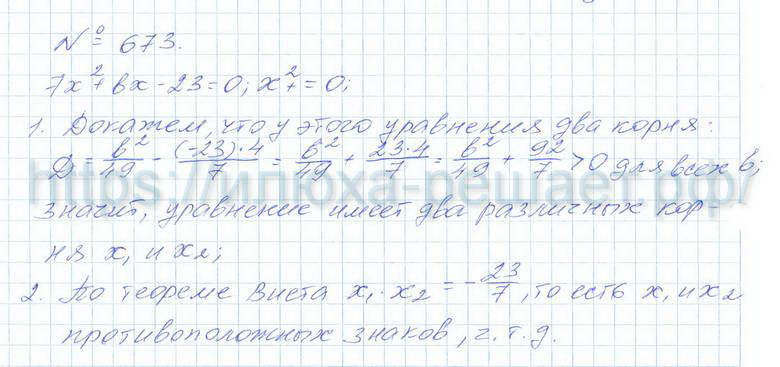 № 673.
7x² + bx - 23 = 0; x² + = 0;
1. Докажем, что у этого уравнения два корня:
D = b²/49 - (-23)·4/7 = b²/49 + 23·4/7 = b²/49 + 92/7 > 0 для всех b;
https://илюха-решает.рф/
значит, уравнение имеет два различных кор-
ня x₁ и x₂;
2. По теореме Виета x₁·x₂ = -23/7, то есть x₁ и x₂
противоположных знаков, ч.т.д.